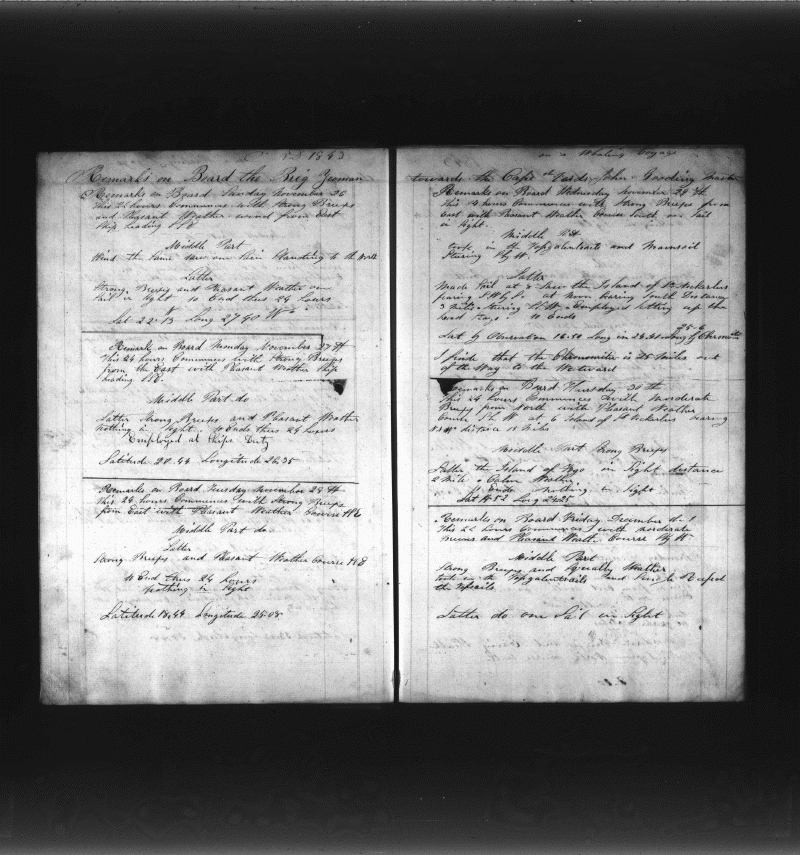 1843
Remarks on Board the Brig Yeoman
Remarks on Board Sunday November 26
This 24 hours Commences with Strong Breeps
and Pleasant Weather wind from East
Ship heading
Middle Part
Wind the Same Saw one Sail Standing to the North
Latter
Strong Breeps and Pleasant Weather one
Sail in Sight So Ends thes 24 hours
Lat 22-13 Long 27 50 W
Remark on Board Monday November 27 th
This 24 hours Commences with Strong Breeps
from the East with Pleasant Weather Ship
heading
Middle Part do
Latter Strong Breeps and Pleasant Weather
Nothing in Sight So Ends thes 24 hours
Employed at Ships Duty
Latitude 20.44 Longitude 26.35
Remarks on Board Tuesday November 28 th
This 24 hours Commences with Strong Breeps
from East with Pleasant Weather Course
Middle Part do
Latter
Strong Breeps and Pleasant Weather Course
So End thes 24 hours
Nothing in Sight
Latitude 18.44 Longitude 25.08
on a Whaling Voyage
towards the Cape de Verds John Gooding
Remarks on Board Wednesday November 29 th
This 24 hours Commences with Strong Breeps from
East with Pleasant Weather Course South one Sail
in Sight
Middle Part
took in the Topgalentsails and Mainsail
Stearing By W
Latter
Made Sail at 8 Saw the Island of St Nickerlus
bearing S W by S at Noon bearing South Distance
Employed Setting up the
head Stays So Ends
Lat by Observation 16.50 Long in 24.41 Long by Chronmtr 25-6
I find that the Chronomiter is 25 Miles out
of the Way to the Westward
Remarks on Board Thursday 30 th
This 24 hours Commences with Moderate
Breeps from North with Pleasant Weather
Course at 6 Island of St Nickerlus bearing
distance 15 Miles
Middle Part Strong Breeps
Latter the Island of Fogo in Sight distance
Miles Calm Weather
So Ends nothing in Sight
Lat Long 24.25
Remarks on Board Friday December 1
This 24 hours Commences with Moderate
Breeses and Pleasant Weather Course By W
Middle Part
Strong Breeps and Squally Weather
took in the Topgalentsails and Reefed
the Topsails
Latter do one Sail in Sight